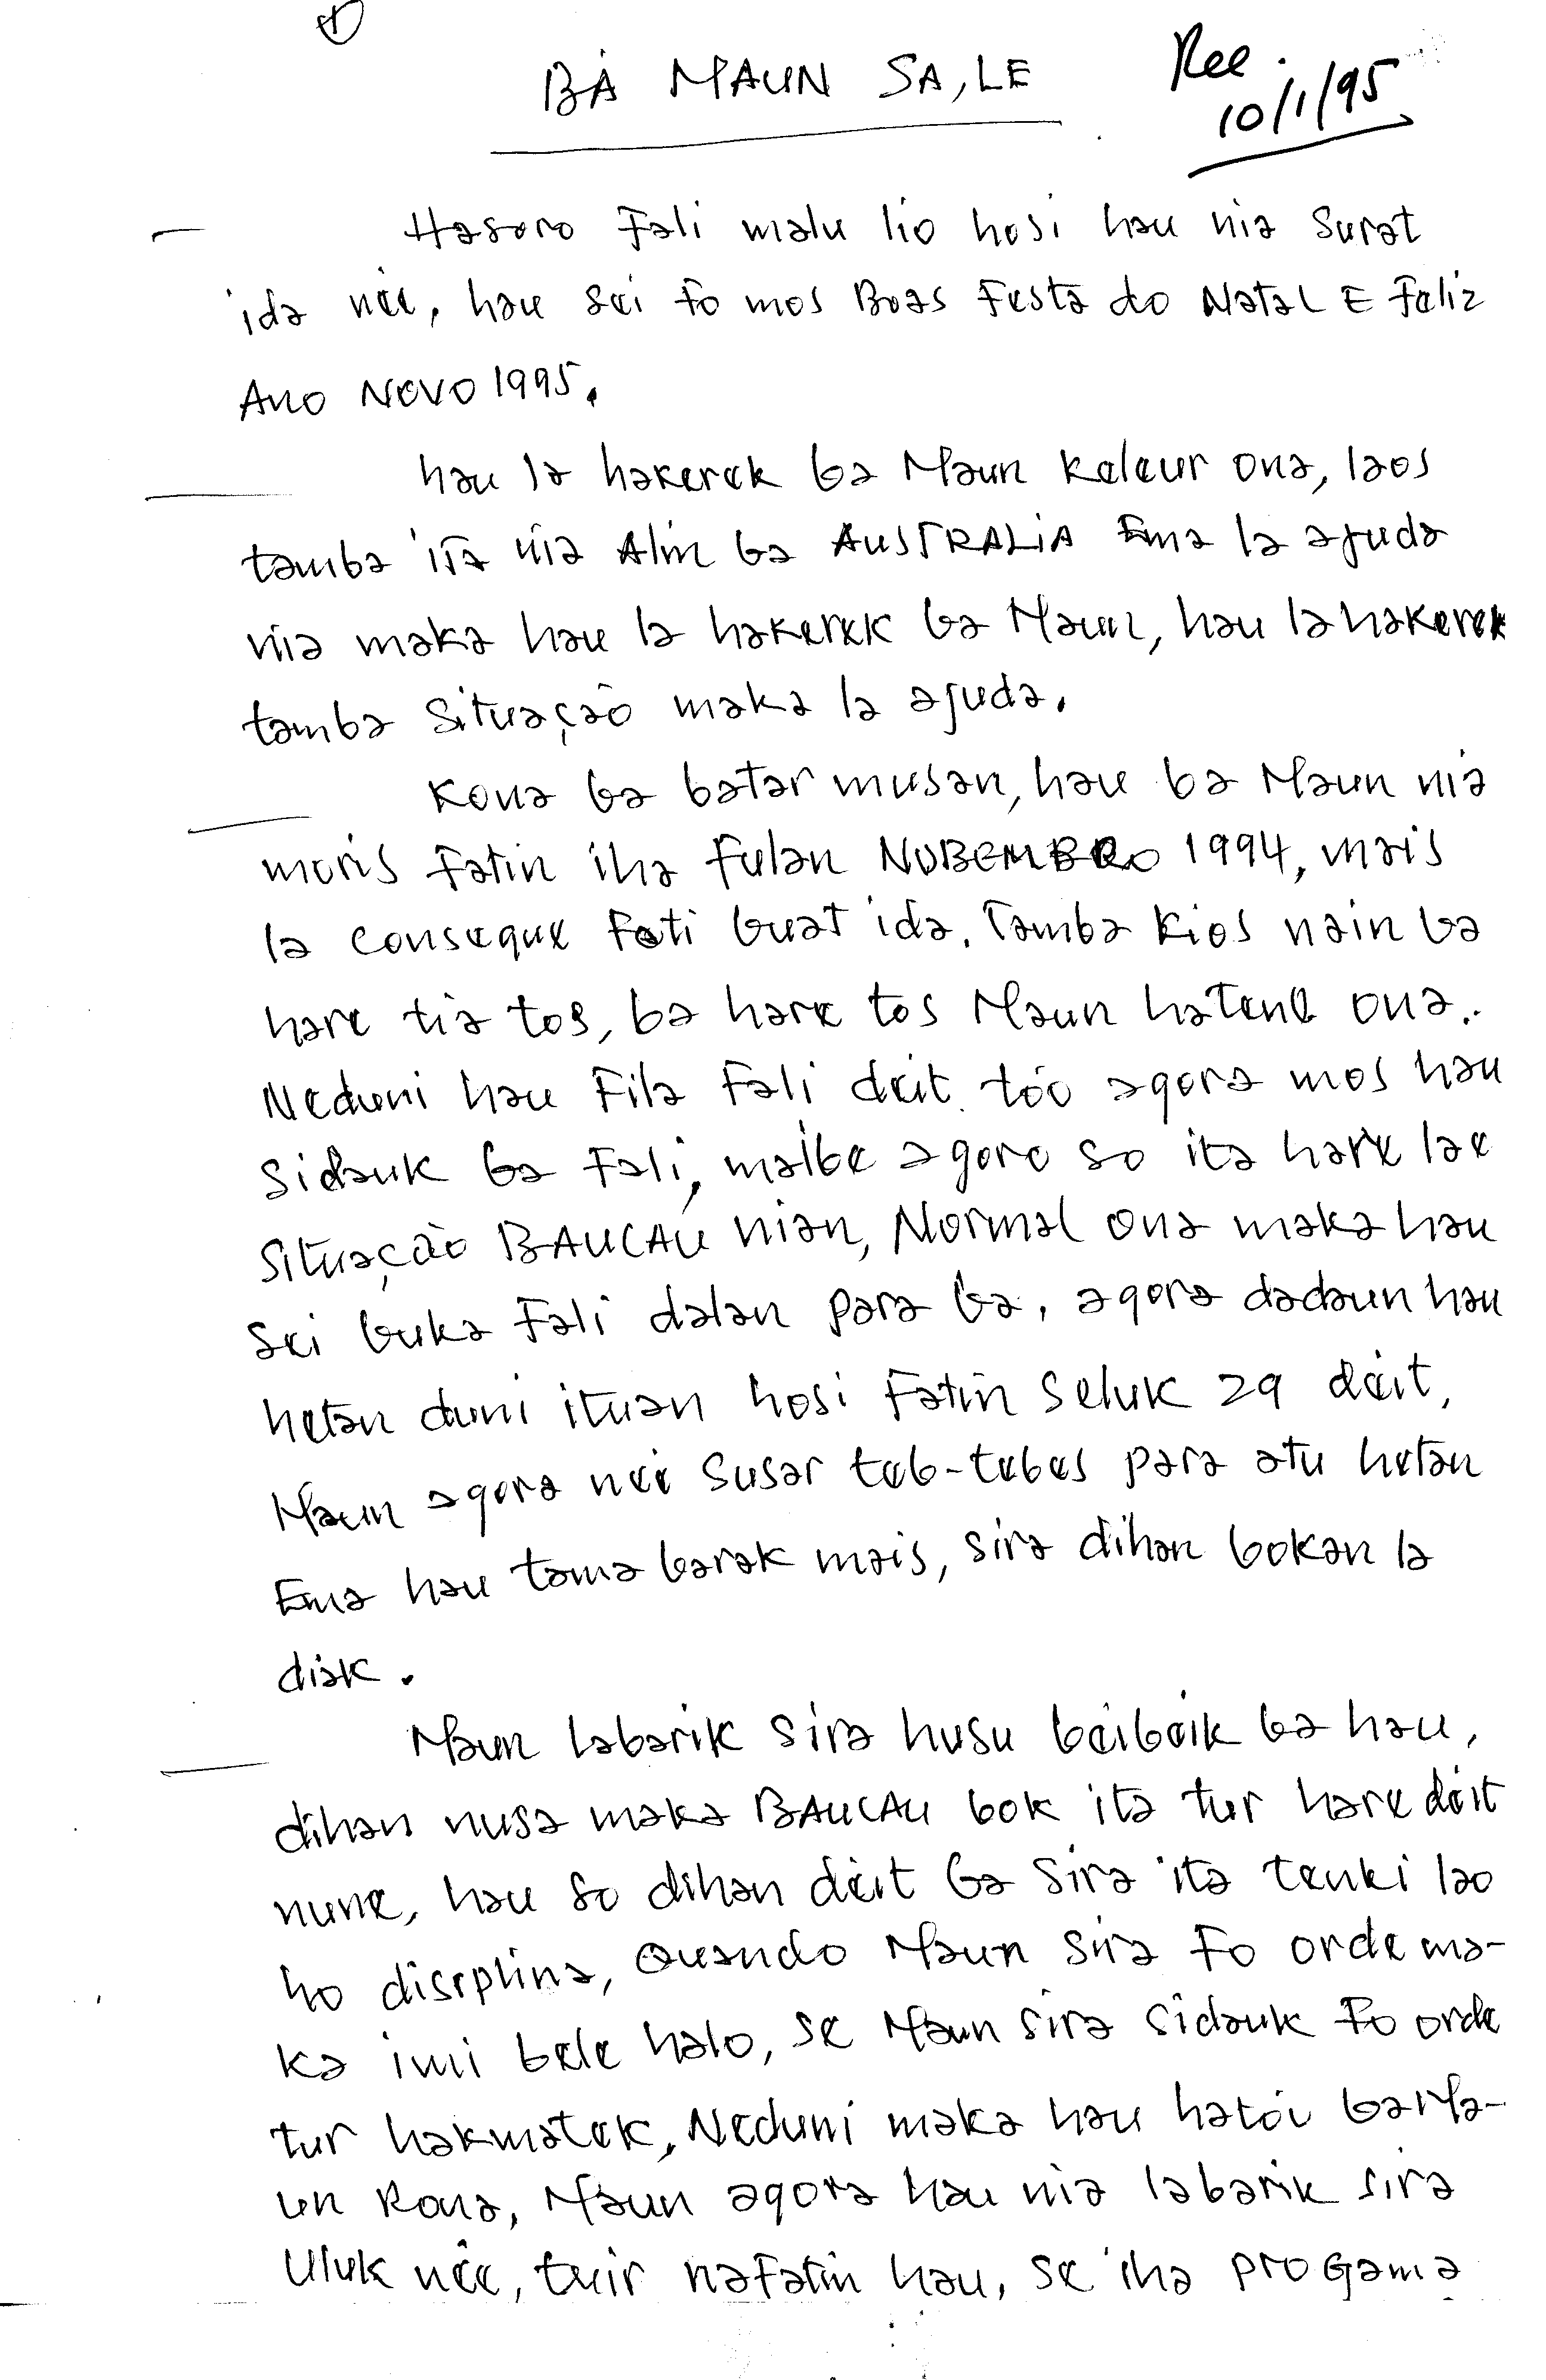 BÁ MAUN SA,LE
Rec.
10/1/95
Hasoro Fali malu lio hosi hau nia Surat
ida née, hau sei fo mos Boas Festa do Natal E Feliz
Ano NOVO 1995.
hau la hakerek ba Maun Keleur ona, laos
tamba ita nia Alin ba AUSTRALIA Ema la ajuda
nia maka hau la hakerek ba Maun, hau la hakerek
tamba Situação maka la ajuda.
Kona ba batar musan, hau ba Maun nia
moris fatin iha fulan NOBEMBRO 1994, mais
la conseque foti buat ida. Tamba Kios nain ba
hare tia tos, ba hare tos Maun hatene ona.
Neduni hau Fila Fali deit. tóo agora mos hau
sidauk ba Fali, maibe agora so ita hare lae
Situação BAUCAU nian, Normal ona maka hau
sei buka Fali dalan para ba, agora dadaun hau
hetan duni ituan hosi Fatin Seluk 29 deit,
Maun agora née Susar teb-tebes para atu hetan
Ema hau tama barak mais, sira dihan bokan la
diak.
Maun labarik sira husu beibeik ba hau,
dihan nusa maka BAUCAU bok ita tur hare deit
nune, hau so dihan deit ba Sira ita tenki lao
ho disrplina, Quando Maun sira Fo orde ma-
ka imi bele halo, se Maun sira sidauk Fo orde
tur hakmatek, Neduni maka hau hatóu ba Ma-
un Rona, Maun agora hau nia labarik sira
Uluk née, tuir nafatin hau, se iha progama